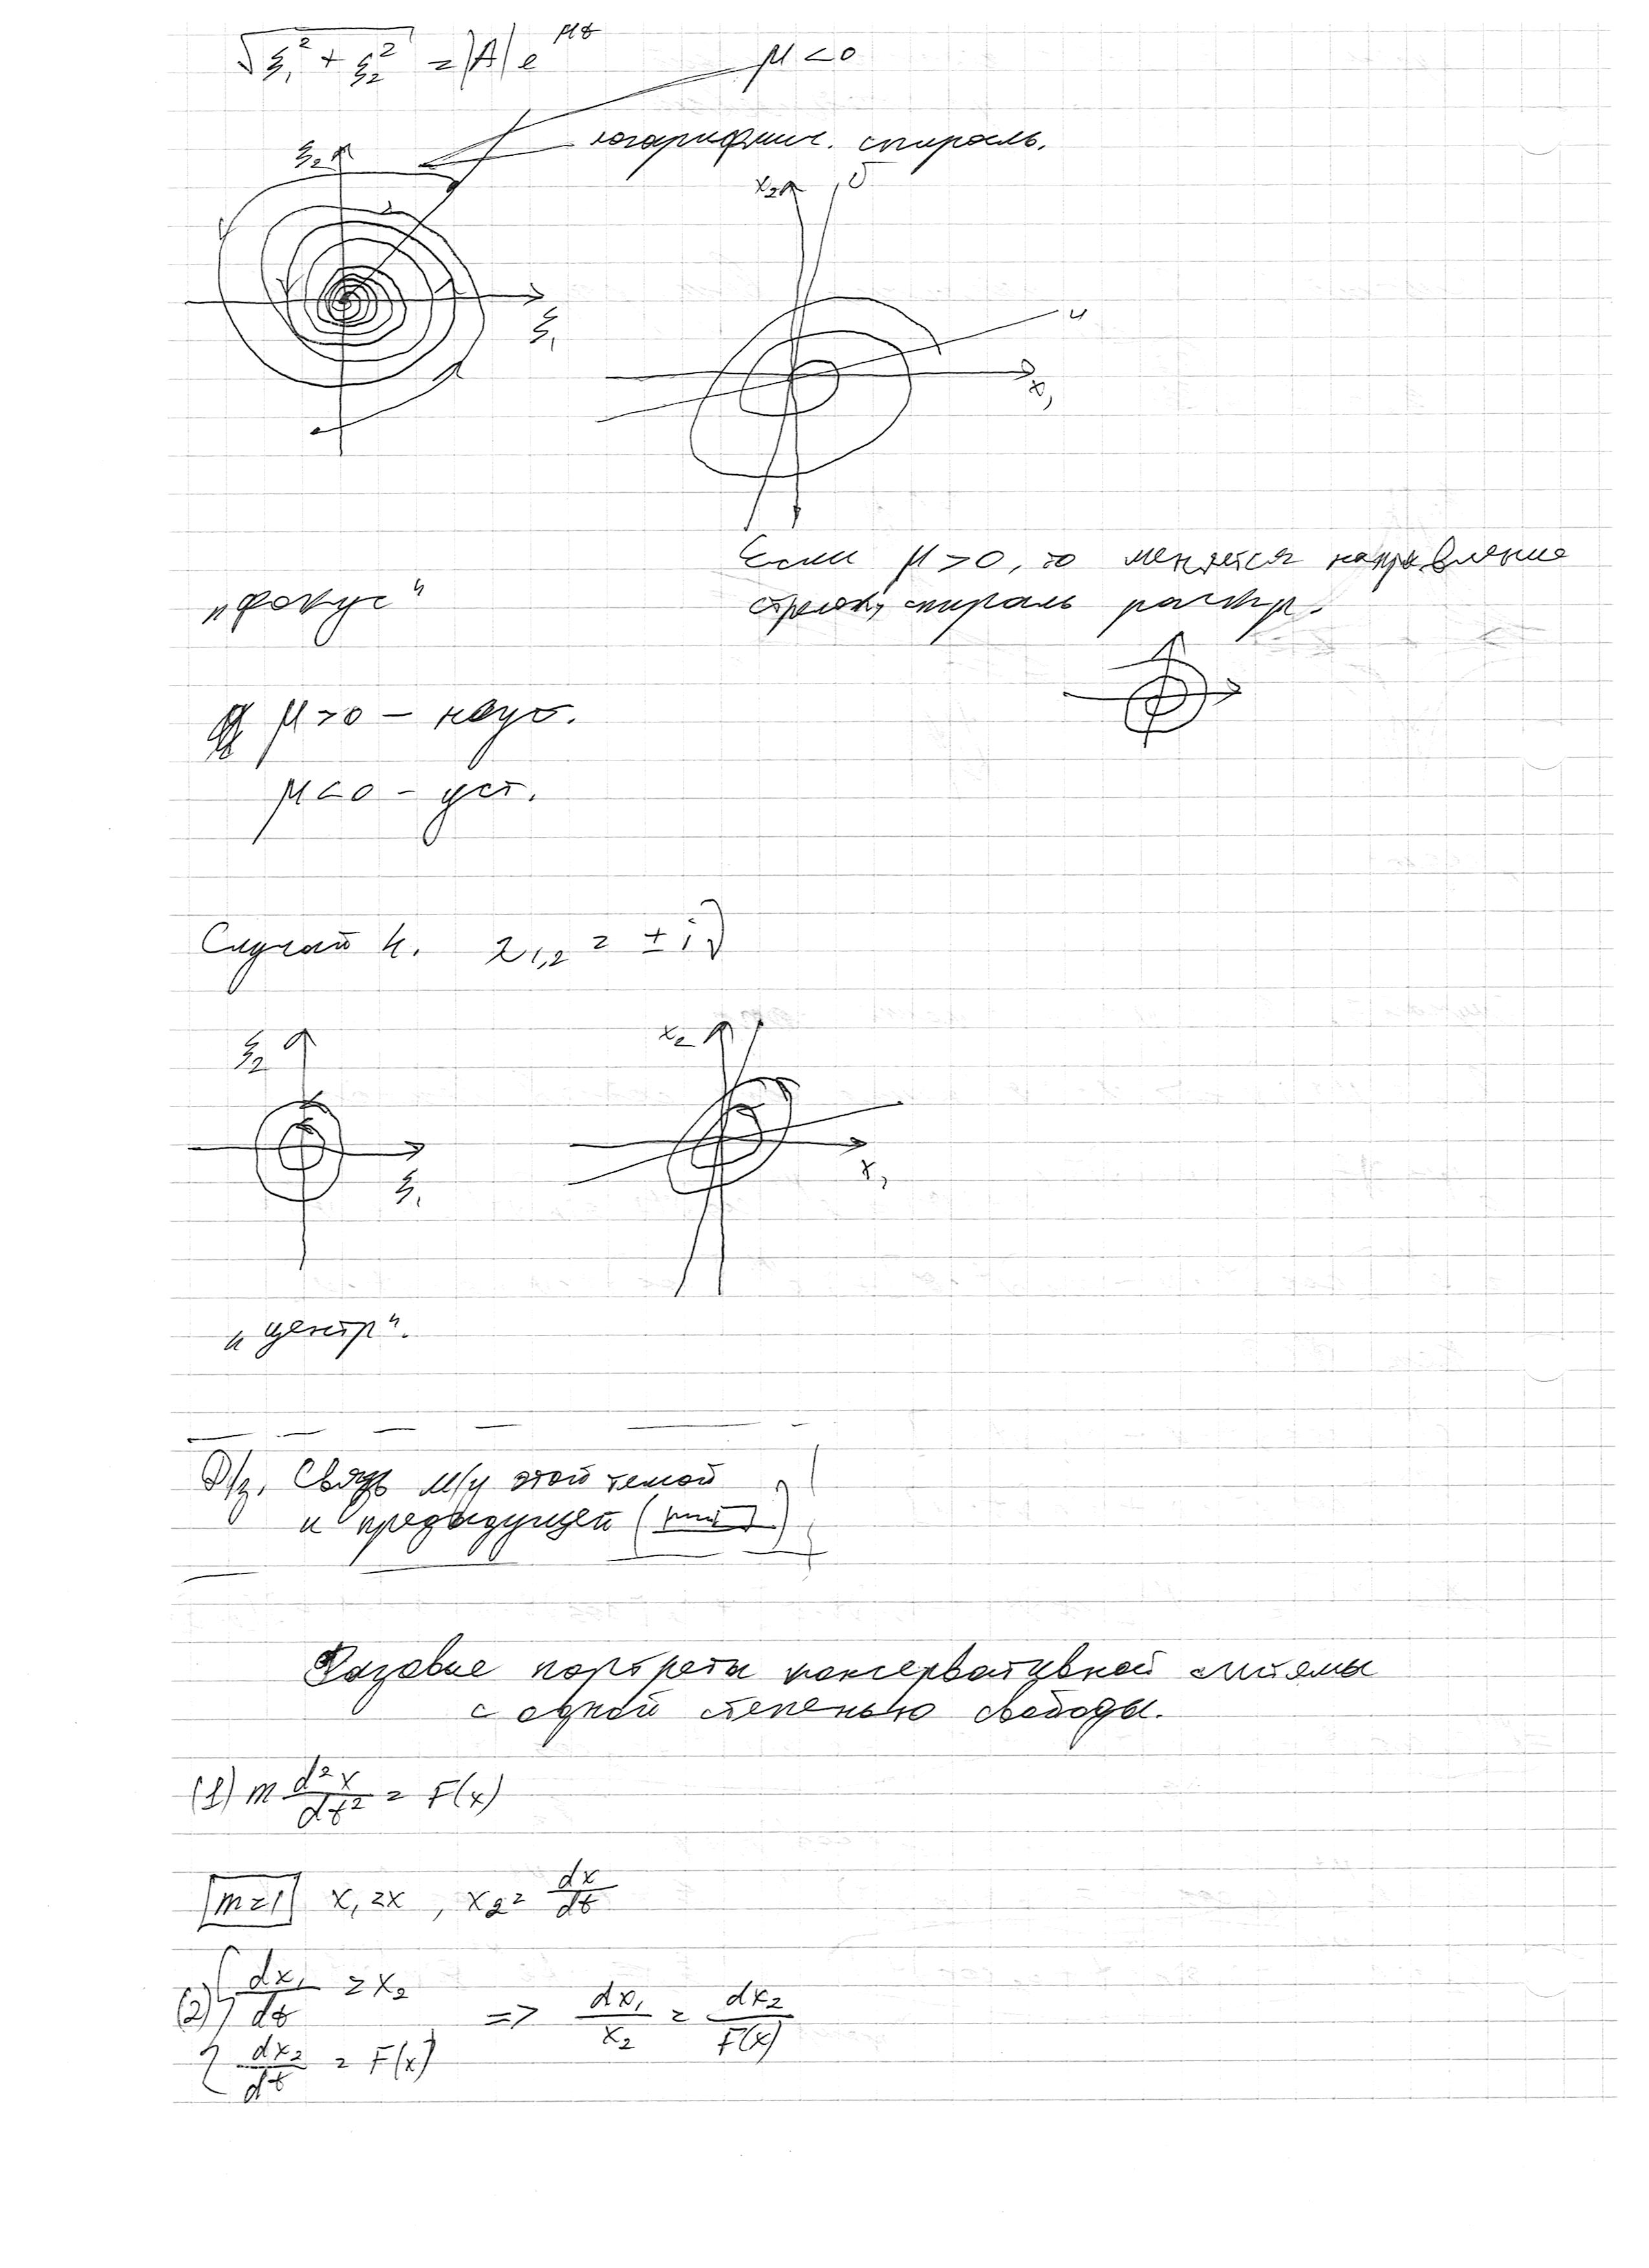 √ξ₁² + ξ₂² = |A| e^{μt}
μ < 0
логарифмич. спираль.
ξ₂
ξ₁
x₂
v
u
x₁
Если μ > 0, то меняется направление
стрелок, спираль
„фокус“
μ > 0 – неуст.
μ < 0 – уст.
Случай 4. λ₁,₂ = ± iν
ξ₂
ξ₁
x₂
x₁
„центр“.
Д/з. Связь м/у этой темой
и предыдущей
Фазовые портреты консервативной системы
с одной степенью свободы.
(1) m d²x/dt² = F(x)
m = 1 x₁ = x, x₂ = dx/dt
(2) { dx₁/dt = x₂
dx₂/dt = F(x)
=> dx₁/x₂ = dx₂/F(x)